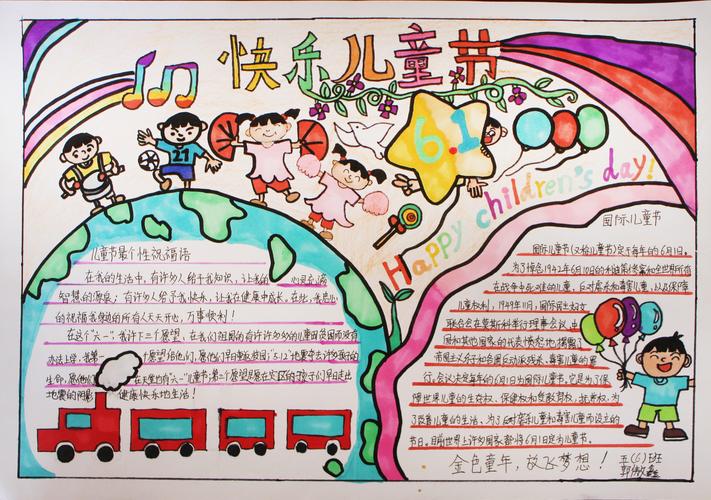 快乐儿童节
6.1
Happy children's day!
儿童节最个性祝福语
在我的生活中，有许多人给予我知识，让我的
心灵充满
智慧的源泉；有许多人给予我快乐，让我在健康中成长，在此，我衷心
的祝福我身边的所有人天天开心，万事快利！
在这个"六一"，我许下二个愿望，在我们祖国的有许许多多的儿童因贫困而没有
办法上学，我第一
个愿望给他们，愿他们早日重返校园；"5.12"地震夺去许多孩子的
生命，愿他们
在天堂也有"六一"儿童节；第二个愿望是愿在灾区的孩子们早日走出
地震的阴影
健康快乐地生活！
国际儿童节
国际儿童节(又称儿童节)定于每年的6月1日。
为了悼念1942年6月10日的利迪策惨案和全世界所有
在战争中死难的儿童，反对虐杀和毒害儿童，以及保障
儿童权利，1949年11月，国际民主妇女
联合会在莫斯科举行理事会议，中
国和其他国家的代表愤怒地揭露了
帝国主义分子和各国反动派残杀、毒害儿童的罪
行。会议决定每年的6月1日为国际儿童节。它是为了保
障世界儿童的生存权、保健权和受教育权，抚养权，为
了改善儿童的生活，为了反对虐杀儿童和毒害儿童而设立的
节日。目前世界上许多国家都将6月1日定为儿童节。
金色童年，放飞梦想！
五(6)班
21